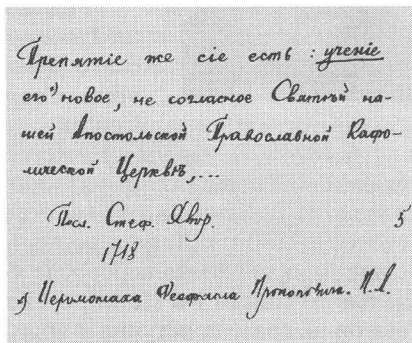 Препятіе же сіе есть: ученіе
его*) новое, не согласное Святѣй на-
шей Апостольской Православной Кафо-
лической Церквѣ,...
Посл. Стеф. Явор. 5
1718
*) Иеромонаха Феофана Прокоповича. П. А.